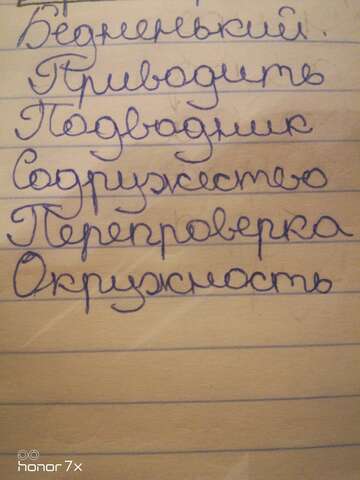 Бедненький.
Приводить
Подводник
Содружество
Перепроверка
Окружность
honor 7x